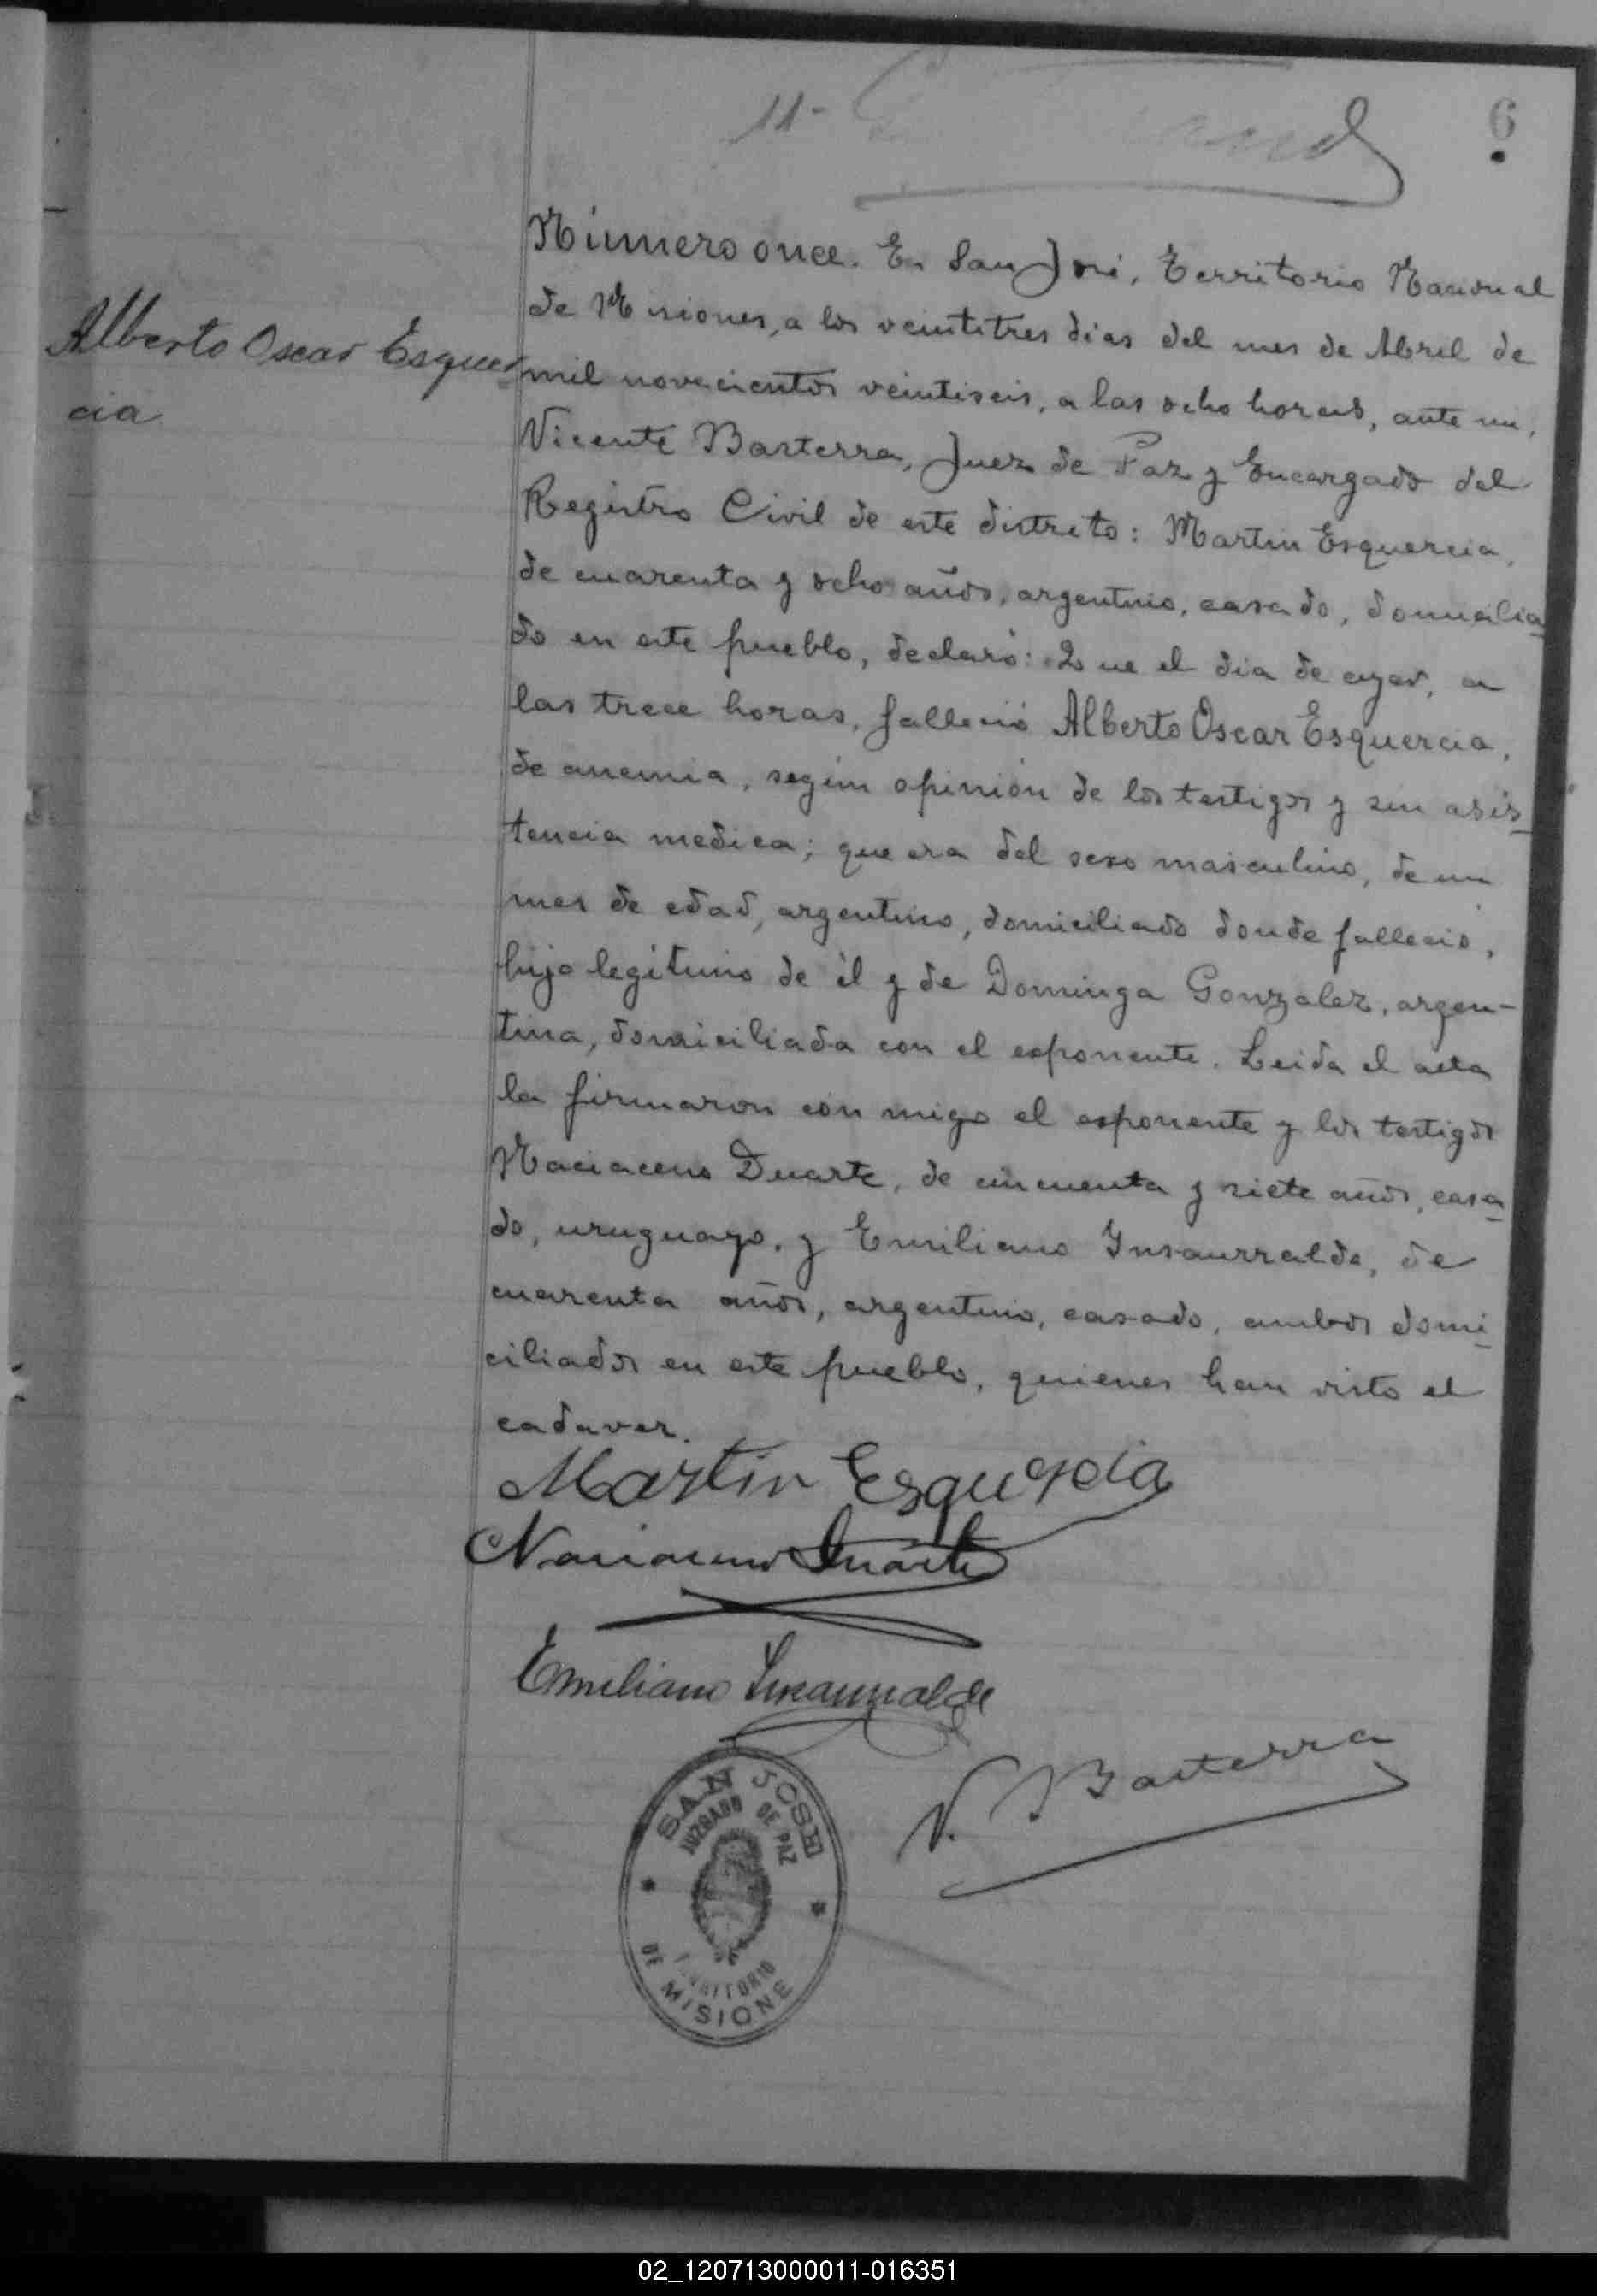 11-
6
Alberto Oscar Esquer
cia
Número once. En San José, Territorio Nacional
de Misiones, a los veintitres dias del mes de Abril de
mil novecientos veintiseis, a las ocho horas, ante mi,
Vicente Basterra, Juez de Paz y Encargado del
Registro Civil de este distrito: Martin Esquercia,
de cuarenta y ocho años, argentino, casado, domicilia
do en este pueblo, declaró: Que el dia de ayer, a
las trece horas, falleció Alberto Oscar Esquercia,
de anemia, según opinión de los testigos y sin asis
tencia medica; que era del sexo masculino, de un
mes de edad, argentino, domiciliado donde falleció,
hijo legitimo de él y de Dominga Gonzalez, argen-
tina, domiciliada con el esponente. Leida el acta
la firmaron con migo el esponente y los testigos
Naciaceno Duarte, de cincuenta y siete años, casa
do, uruguayo, y Emiliano Insaurralde, de
cuarenta años, argentino, casado, ambos domi
ciliados en este pueblo, quienes han visto el
cadaver.
Martin Esquercia
Duarte
Emiliano Insaurralde
V. Basterra
SAN JOSE
JUZGADO DE PAZ
TERRITORIO
DE MISIONE
02_120713000011-016351